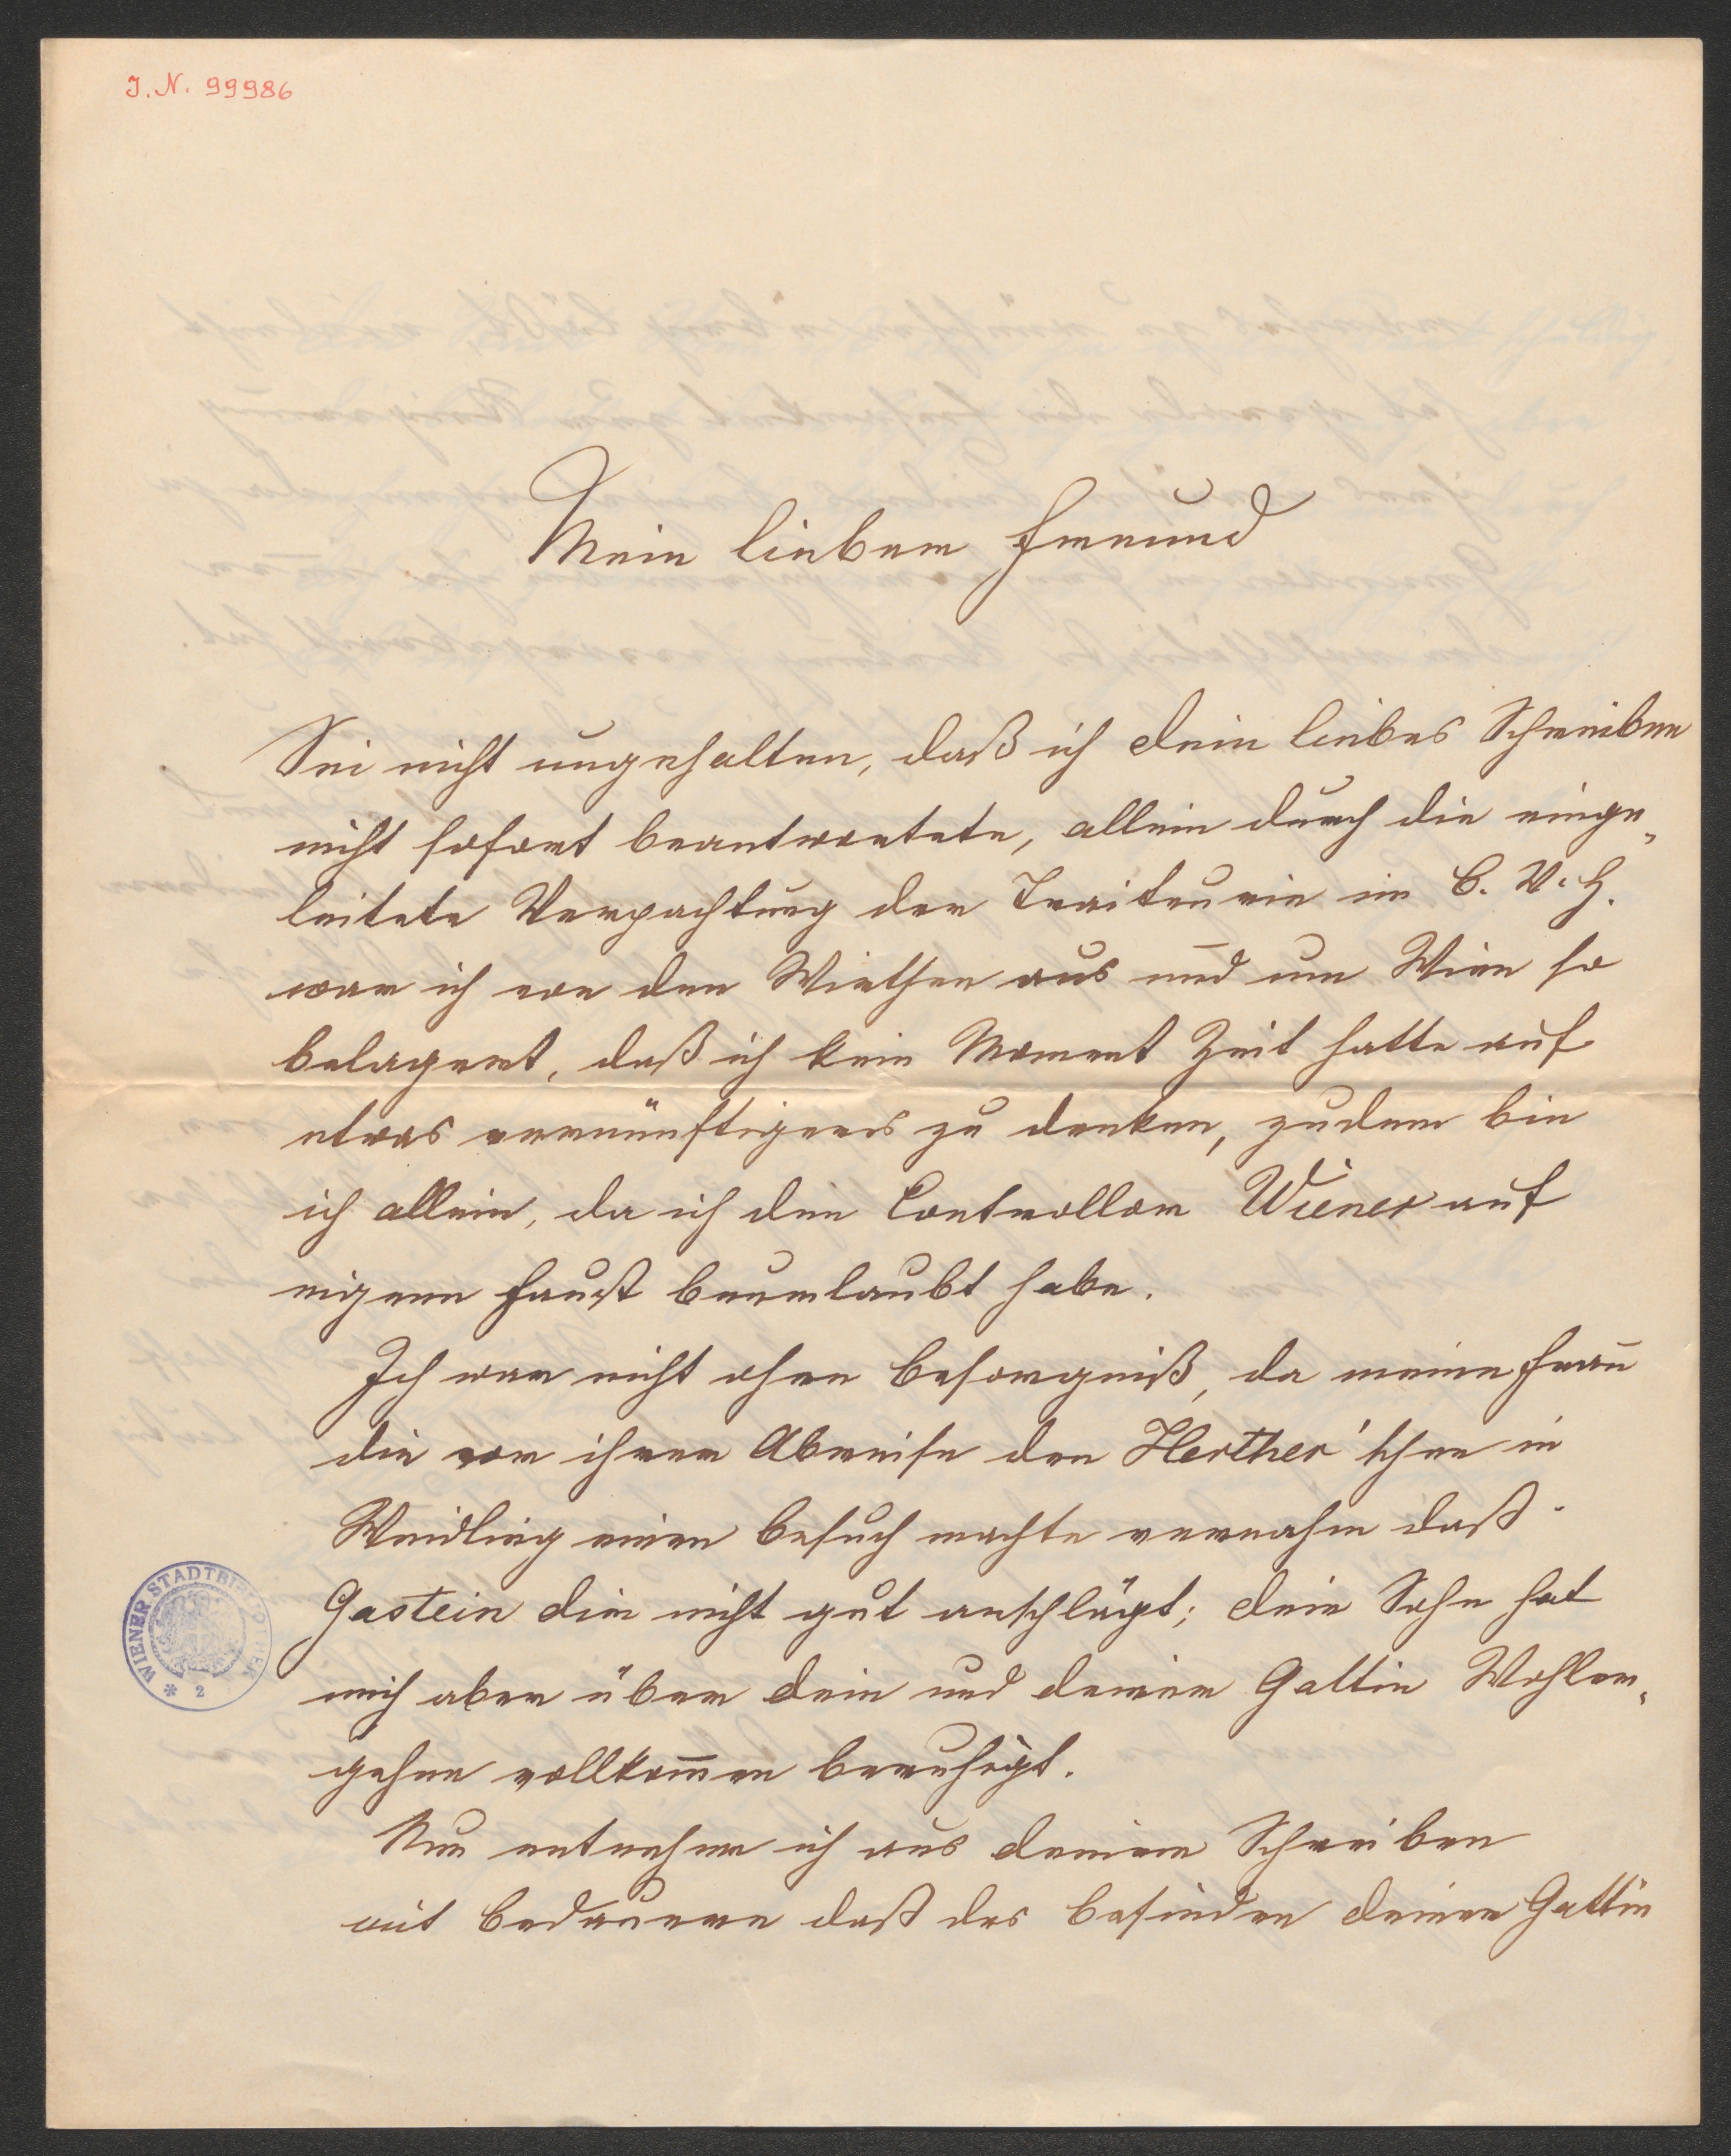 J. N. 99986
Mein lieber Freund
Sei nicht ungehalten, daß ich dein liebes Schreiben
nicht sofort beantwortete, allein durch die einge„
leitete Verpachtung der Traiteurie im C. V. H.
war ich von den Wirthen aus und um Wien so
belagert, daß ich kein Moment Zeit hatte auf
etwas vernünftigers zu denken, zudem bin
ich allein, da ich den Controllor Wiener auf
eigene Faust beurlaubt habe.
Ich war nicht ohne Besorgniß, da meine Frau
die vor ihrer Abreise den Herther'schen in
Weidling einen Besuch machte vernahm daß
Gastein dir nicht gut anschlägt; dein Sohn hat
mich aber über dein und deiner Gattin Wohler„
gehen vollkom̄en beruhigt.
Nun entnehme ich aus deinem Schreiben
mit Bedauern daß das Befinden deiner Gattin
WIENER STADTBIBLIOTHEK
* 2